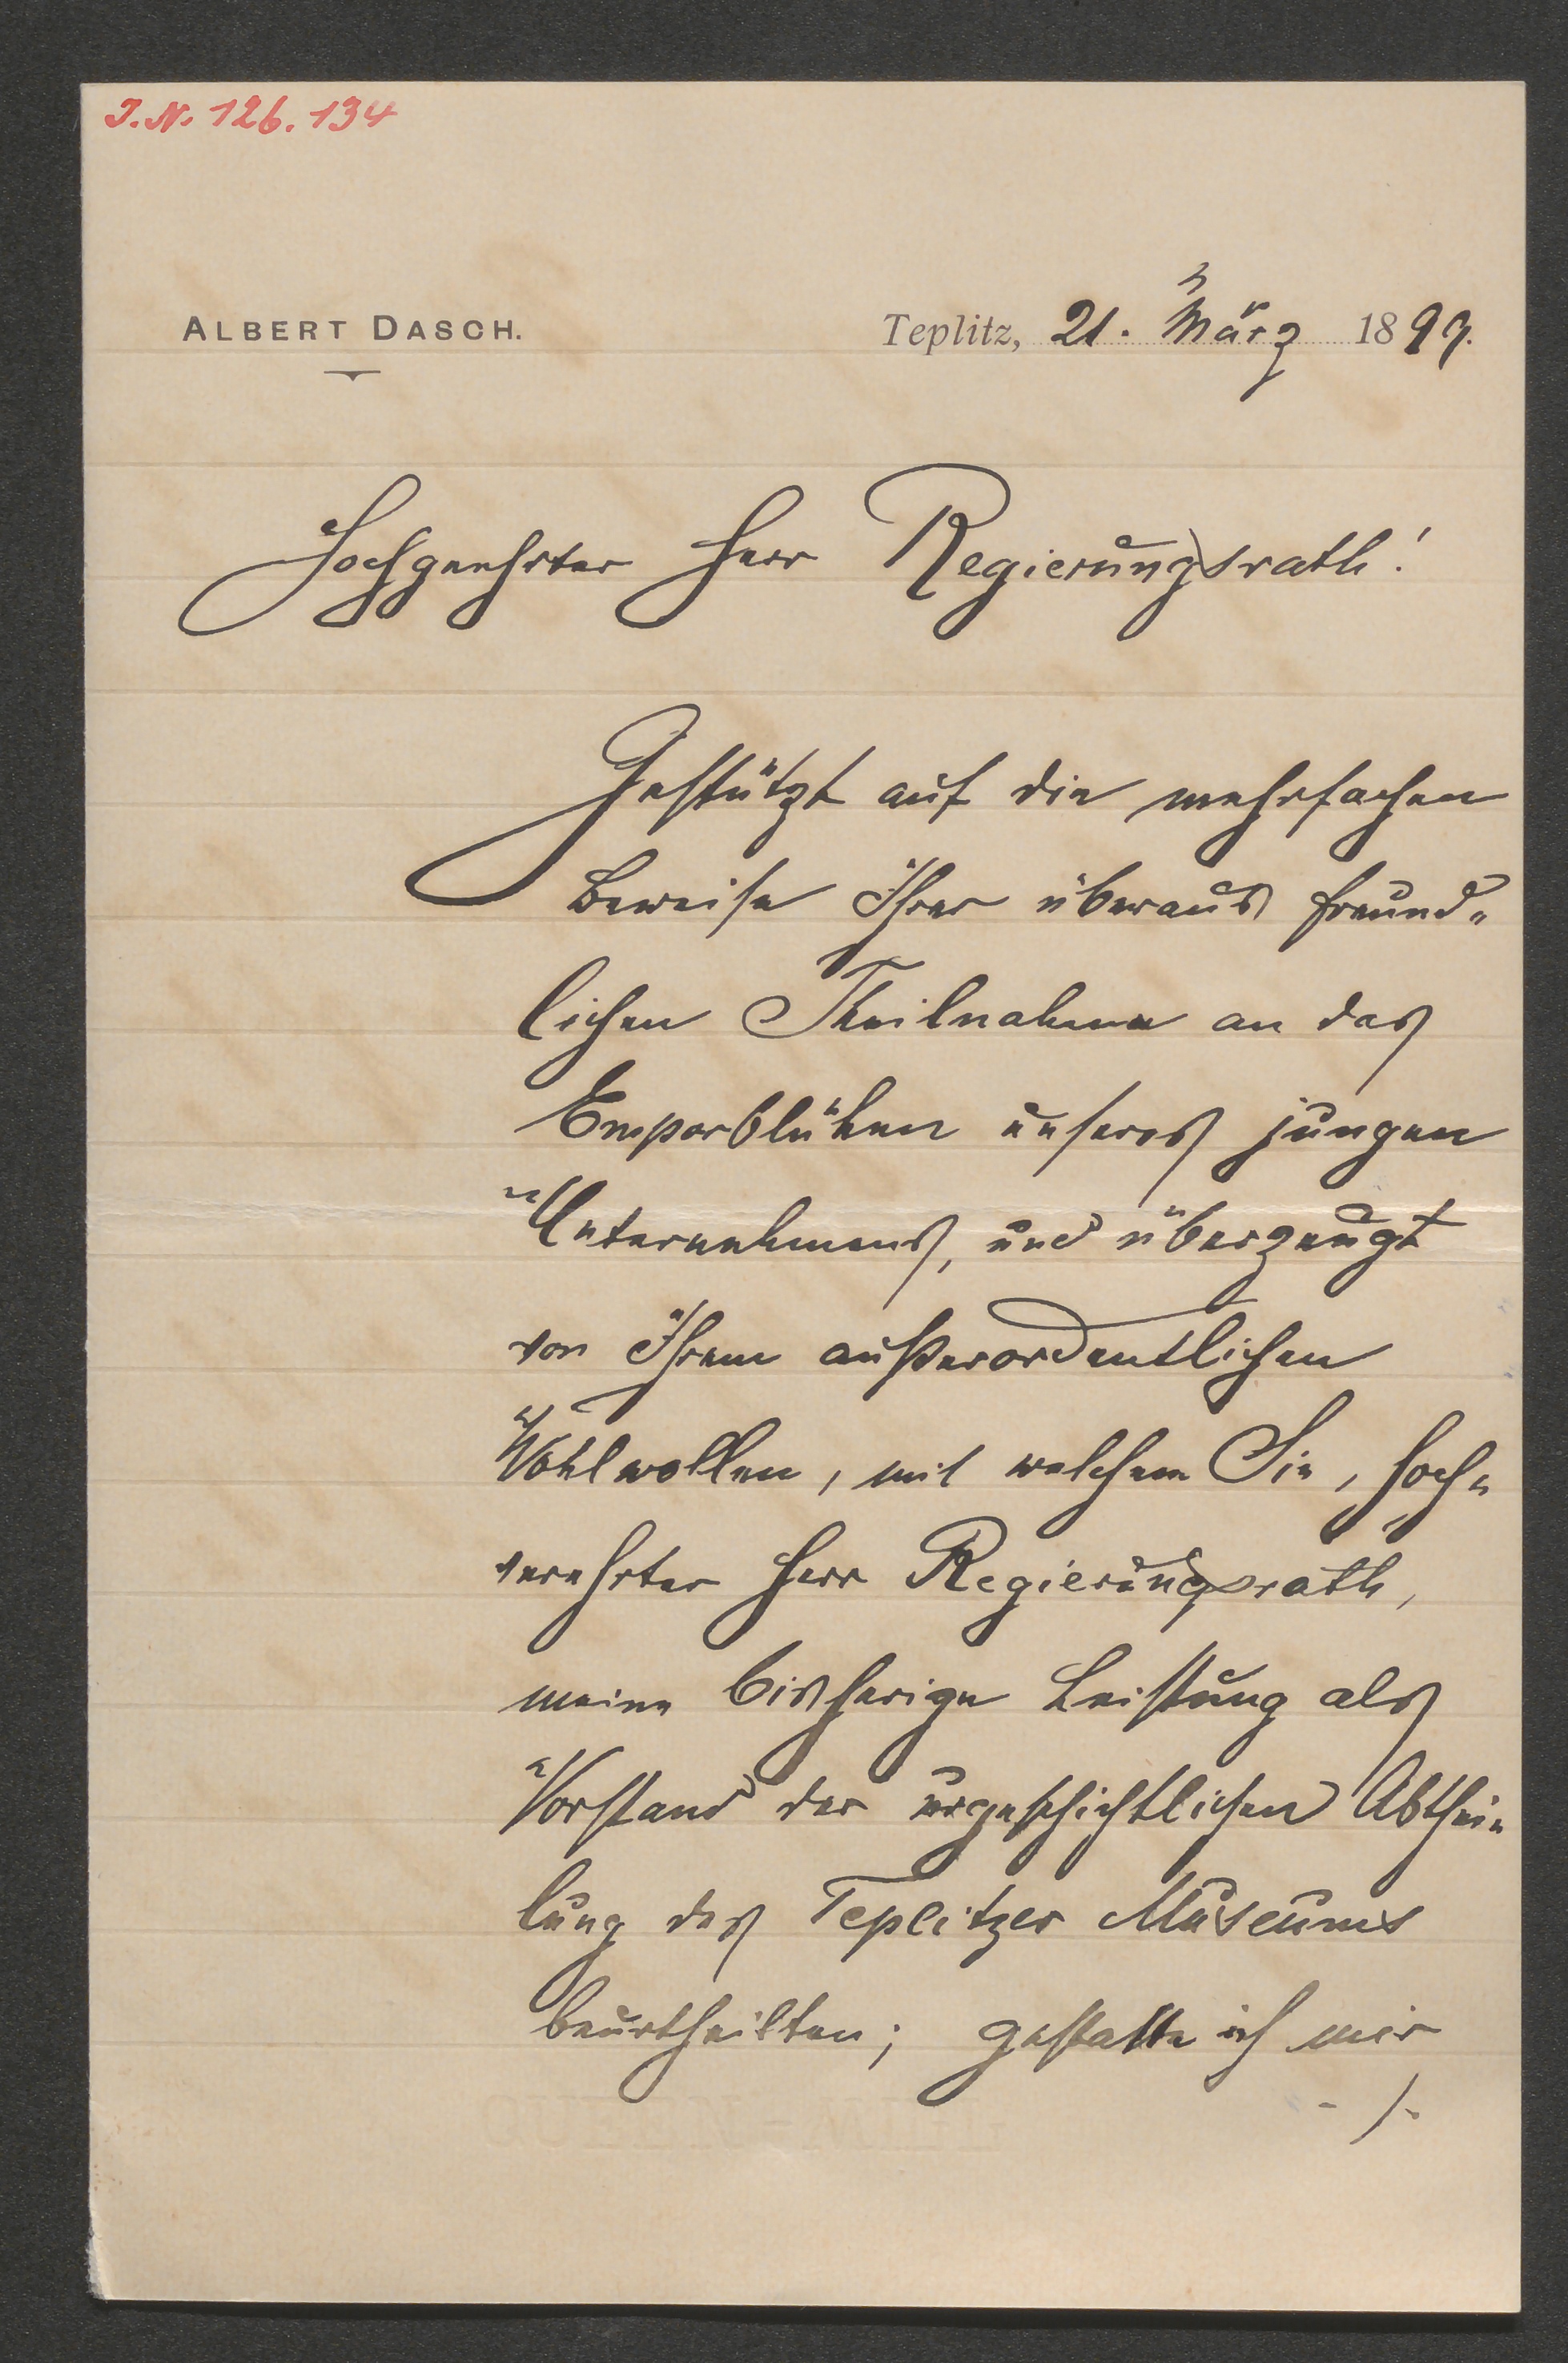 I.N. 126.134
ALBERT DASCH.
Teplitz, 21. März 1899.
Hochgeehrter Herr Regierungsrath!
Gestützt auf die mehrfachen
Beweise Ihrer überaus freund-
lichen Theilnahme an das
Emporblühen unseres jungen
Unternehmens, und überzeugt
von Ihrem außerordentlichen
Wohlwollen, mit welchem Sie, hoch-
verehrter Herr Regierungsrath,
meine bisherige Leistung als
Vorstand der urgeschichtlichen Abthei-
lung des Teplitzer Museums
beurtheilten; gestatte ich mir
-/.